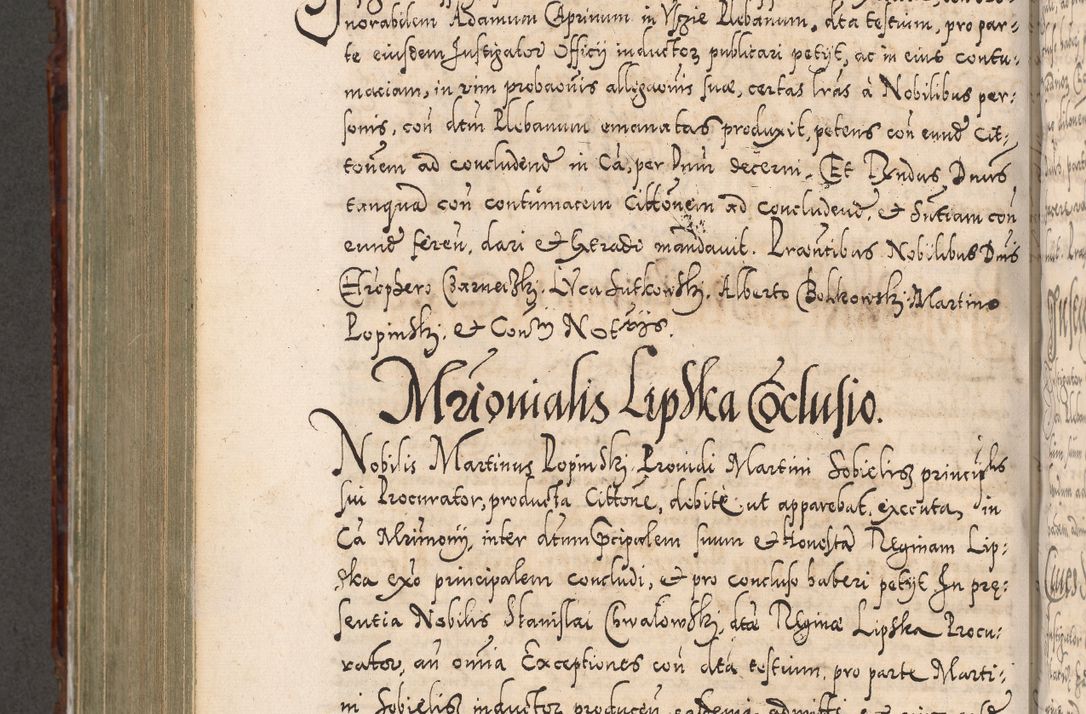 norabilem Adamum Caprinum in Yszie Plebanum, dta testium, pro par-
te eiusdem Instigator Officij inductor publicari petijt, ac in eius contu-
maciam, in vim probaois allegaois suæ, certas lras à Nobilibus per-
sonis, con dtm Plebanum emanatas produxit, petens con eund Cit-
tonem ad concludend in Ca, per Dnm decerni. Et Rndus Dnus
tanquã con contumacem Cittonem ad concludend, et Sntiam con
eund feren, dari et extradi mandavit. Praesntibus Nobilibus Dnis
Luca Sutkowski, Alberto Bolkowski, Martino
Popinski, et Con Notrijs.
Mrionialis Lipska Coclusio.
Nobilis Martinus Popinski, Prouidi Martini Sobielis principlis
sui Procurator, producta Cittone, debitè ut apparebat, executa, in
Ca Mrimonij, inter dtum Pcipalem suum et Honosta Reginam Lip-
ska exo principalem concludi, et pro concluso haberi petijt. In præ-
sentia Nobilis Stanislai Chwalowski, dta Reginæ Lipska Procu-
rator, an omia Exceptiones con dta testium, pro parte Marti-
ni Sobielis inductor producen, eademq admitti, et